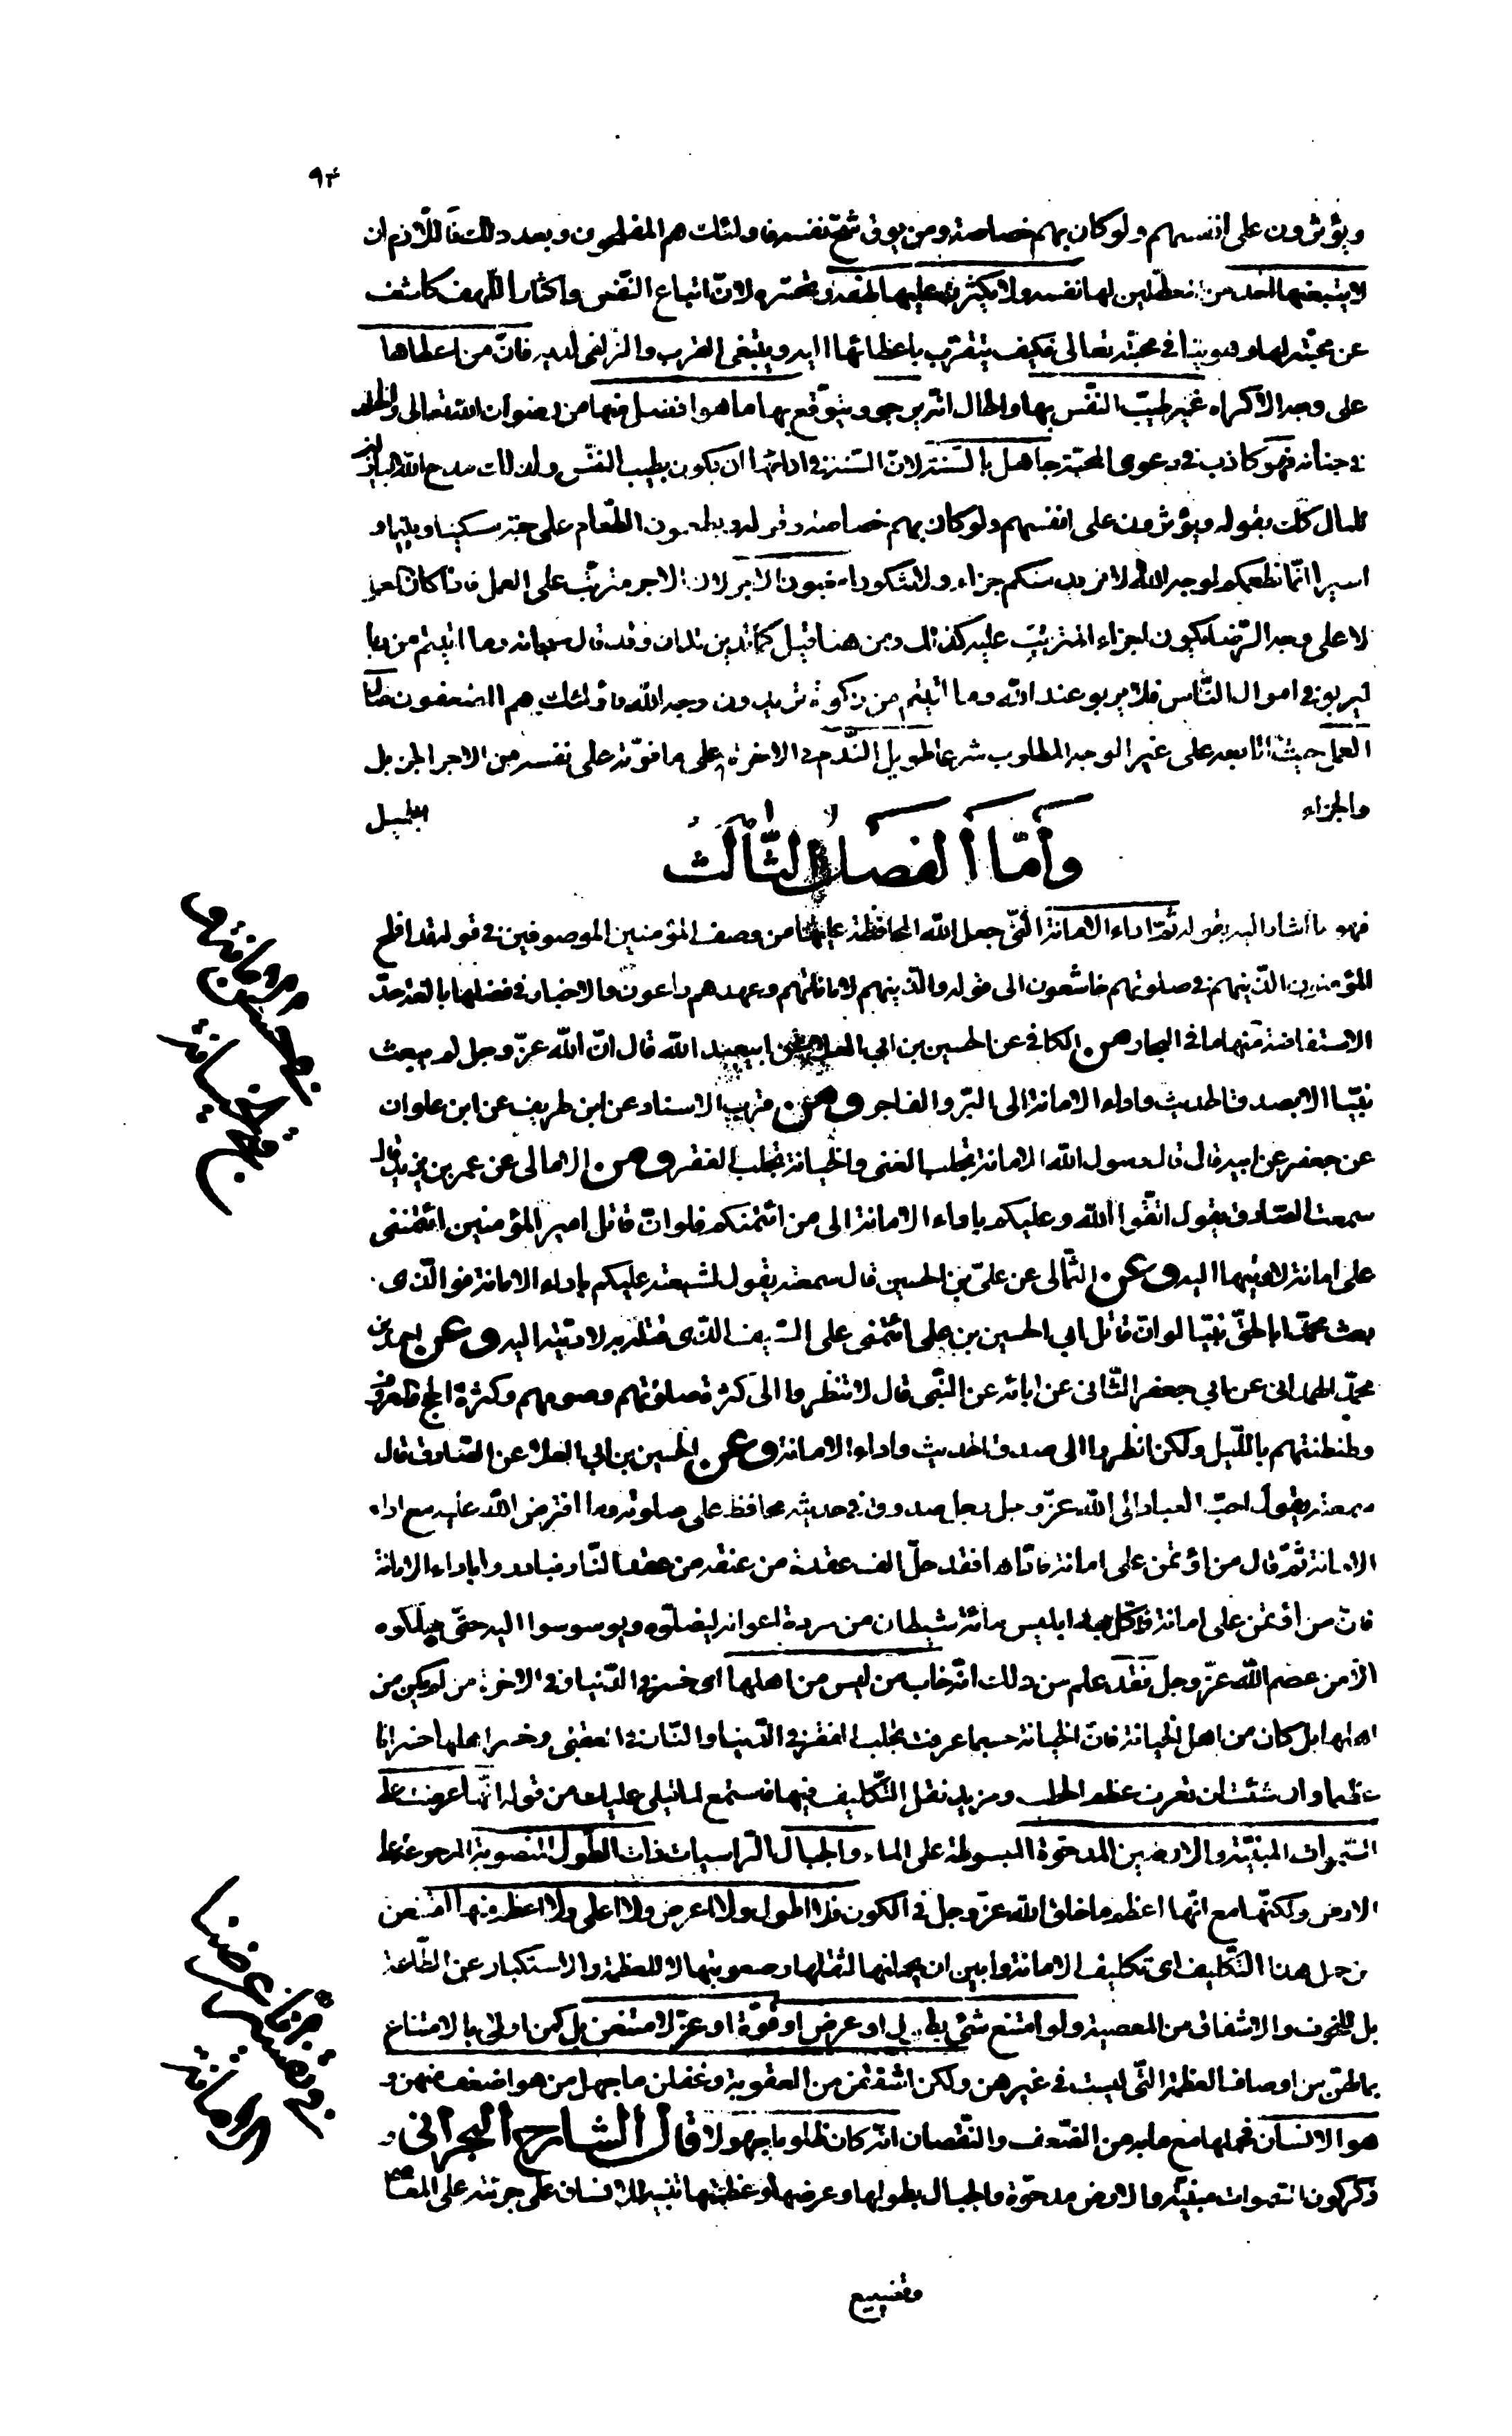 ٩٣
ويؤثرون على انفسهم ولو كان بهم خصاصة ومن يوق شحّ نفسه فاولئك هم المفلحون وبعد ذلك فاللّازم ان
لا يتبعنها احد من المعطين لها نفسه ولا يكثرنّ عليها لهفه وتحسّره لانّ اتباع النّفس واكثار اللّهف كاشف
عن محبّته لها وهو ينافي محبّته تعالى فكيف يتقرّب باعطائها اليه ويبتغى القرب والزلفى لديه فانّ من اعطاها
على وجه الاكراه غير طيّب النّفس بها والحال انّه يرجو ويتوقّع بها ما هو افضل منها من رضوان اللّه تعالى والخلد
في جنانه فهو كاذب في دعوى المحبّة جاهل بالسّنّة لانّ السّنة في ادائها ان يكون بطيب النّفس ولذلك مدح اللّه الباذلين
للمال كذلك بقوله ويؤثرون على انفسهم ولو كان بهم خصاصة وقوله ويطعمون الطّعام على حبّه مسكينا ويتيما و
اسيرا انّما نطعمكم لوجه اللّه لا نريد منكم جزاء ولا شكورا مغبون الاجر لانّ الاجر مترتّب على العمل فاذا كان العمل
لا على وجه الرّضا يكون الجزاء المترتّب عليه كذلك ومن هنا قيل كما تدين تدان وقد قال سبحانه وما اتيتم من ربا
ليربو في اموال النّاس فلا يربو عند اللّه وما اتيتم من زكوة تريدون وجه اللّه فاولئك هم المضعفون ضالّ
العمل حيث اتا به على غير الوجه المطلوب شرعا طويل النّدم في الاخرة على ما فوّته على نفسه من الاجر الجزيل
والجزاء الجميل
وأمّا الفصل الثّالث
فهو ما اشار اليه بقوله ثمّ اداء الامانة الّتى جعل اللّه المحافظة عليها من وصف المؤمنين الموصوفين في قوله قد افلح
المؤمنون الّذينهم في صلوتهم خاشعون الى قوله والّذينهم لاماناتهم وعهدهم راعون والاخبار في فضلها بالغة حدّ
الاستفاضة منها ما في البحار من الكافي عن الحسين بن ابي العلا عن ابيعبد اللّه قال انّ اللّه عزّ وجل لم يبعث
نبيّا الا بصدق الحديث واداء الامانة الى البرّ والفاجر ومن قرب الاسناد عن ابن طريف عن ابن علوان
عن جعفر عن ابيه قال قال رسول اللّه الامانة تجلب الغنى والخيانة تجلب الفقر ومن الامالى عن عمر بن يزيد قال
سمعت الصّادق يقول اتقّوا اللّه وعليكم باداء الامانة الى من ائتمنكم فلو انّ قاتل امير المؤمنين ائتمننى
على امانة لادّيتها اليه وعن الثّمالى عن علىّ بن الحسين قال سمعته يقول لشيعته عليكم باداء الامانة فوالّذى
بعث محمّدا بالحقّ نبيّا لو انّ قاتل ابي الحسين بن على ائتمنى على السّيف الّذى قتله به لادّيته اليه وعن احمد بن
محمّد الهمدانى عن ابي جعفر الثّانى عن ابائه عن النّبى قال لا تنظروا الى كثرة صلوتهم وصومهم وكثرة الحج والمعروف
وطنطنتهم باللّيل ولكن انظروا الى صدق الحديث واداء الامانة وعن الحسين بن ابي العلا عن الصّادق قال
سمعته يقول احبّ العباد الى اللّه عزّ وجل رجل صدوق في حديثه محافظ على صلوته وما افترض اللّه عليه مع اداء
الامانة ثمّ قال من اؤتمن على امانة فادّاها فقد حلّ الف عقدة من عنقه من عقد النّار فبادروا باداء الامانة
فانّ من اؤتمن على امانة وكّل به ابليس مائة شيطان من مردة اعوانه ليضلّوه ويوسوسوا اليه حتّى يهلكوه
الّا من عصم اللّه عزّ وجل فقد علم من ذلك انّه خاب من ليس من اهلها اى خسر في الدّنيا وفي الاخرة من لم يكن من
اهلها بل كان من اهل الخيانة فانّ الخيانة حسبما عرفت تجلب الفقر في الدّنيا والنّار في العقبى وخسر اهلها خسرانا
عظيما وان شئت ان تعرف عظم الخطب ومزيد ثقل التّكليف فيها فاستمع لما يتلى عليك من قوله انّها عرضت على
السّموات المبنيّة والارضين المدحوّة المبسوطة على الماء والجبال الرّاسيات ذات الطّول المنصوبة المرفوعة على
الارض ولكنّها مع انّها اعظم ما خلق اللّه عزّ وجل في الكون فلا اطول ولا اعرض ولا اعلى ولا اعظم منها امتنعن
من حمل هذا التّكليف اى تكليف الامانة وابين ان يحملنها لثقلها وصعوبتها لا للعظمة والاستكبار عن الطّاعة
بل للخوف والاشفاق من المعصية ولو امتنع شئ بطول او عرض او قوّة او عزّ لامتنعن بل كنّ اولى بالامتناع
بما لهنّ من اوصاف العظمة الّتى ليست في غيرهن ولكن اشفقن من العقوبة وغفلن ما جهل من هو اضعف منهن و
هو الانسان فحملها مع ما به من الضّعف والنّقصان انّه كان ظلوما جهولا قال الشارح البحرانى و
ذكر كون السّموات مبنيّة والارض مدحوّة والجبال بطولها وعرضها وعظمتها تنبيه للانسان على جرئته على المعاصى
وتضييع